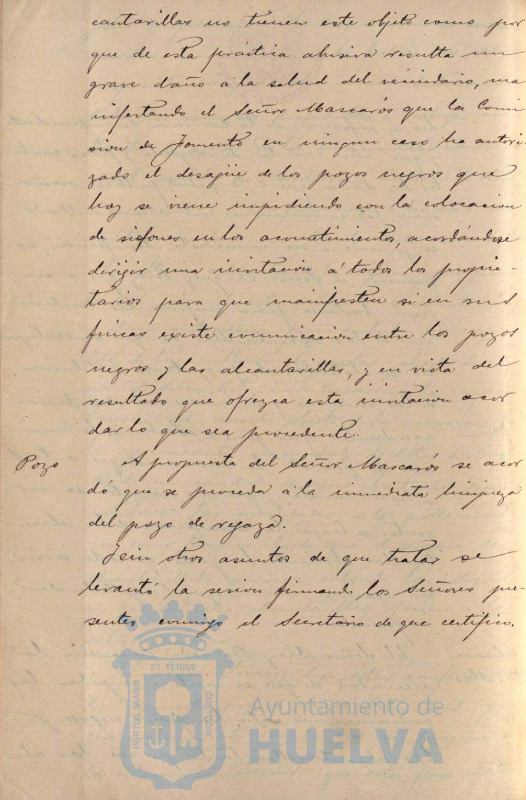 cantarillas no tienen este objeto como por
que de esta práctica abusiva resulta un
grave daño á la salud del vecindario, ma
nifestando el Señor Mascarós que la Comi
sion de Fomento en ningun caso ha autori
zado el desagüe de los pozos negros que
hoy se viene impidiendo con la colocacion
de sifones en los acometimientos, acordándose
dirijir una invitacion á todos los propie-
tarios para que manifiesten si en sus
fincas existe comunicacion entre los pozos
negros y las alcantarillas, y en vista del
resultado que ofrezca esta invitacion acor
dar lo que sea procedente.
Pozo A propuesta del Señor Mascarós se acor
dó que se proceda á la inmediata limpieza
del pozo de regaza.
Y sin otros asuntos de que tratar se
levantó la sesion firmando los Señores pre
sentes conmigo el Secretario de que certifico.
ET TERRÆ
PORTUS MARIS
CUSTODIA
Ayuntamiento de
HUELVA